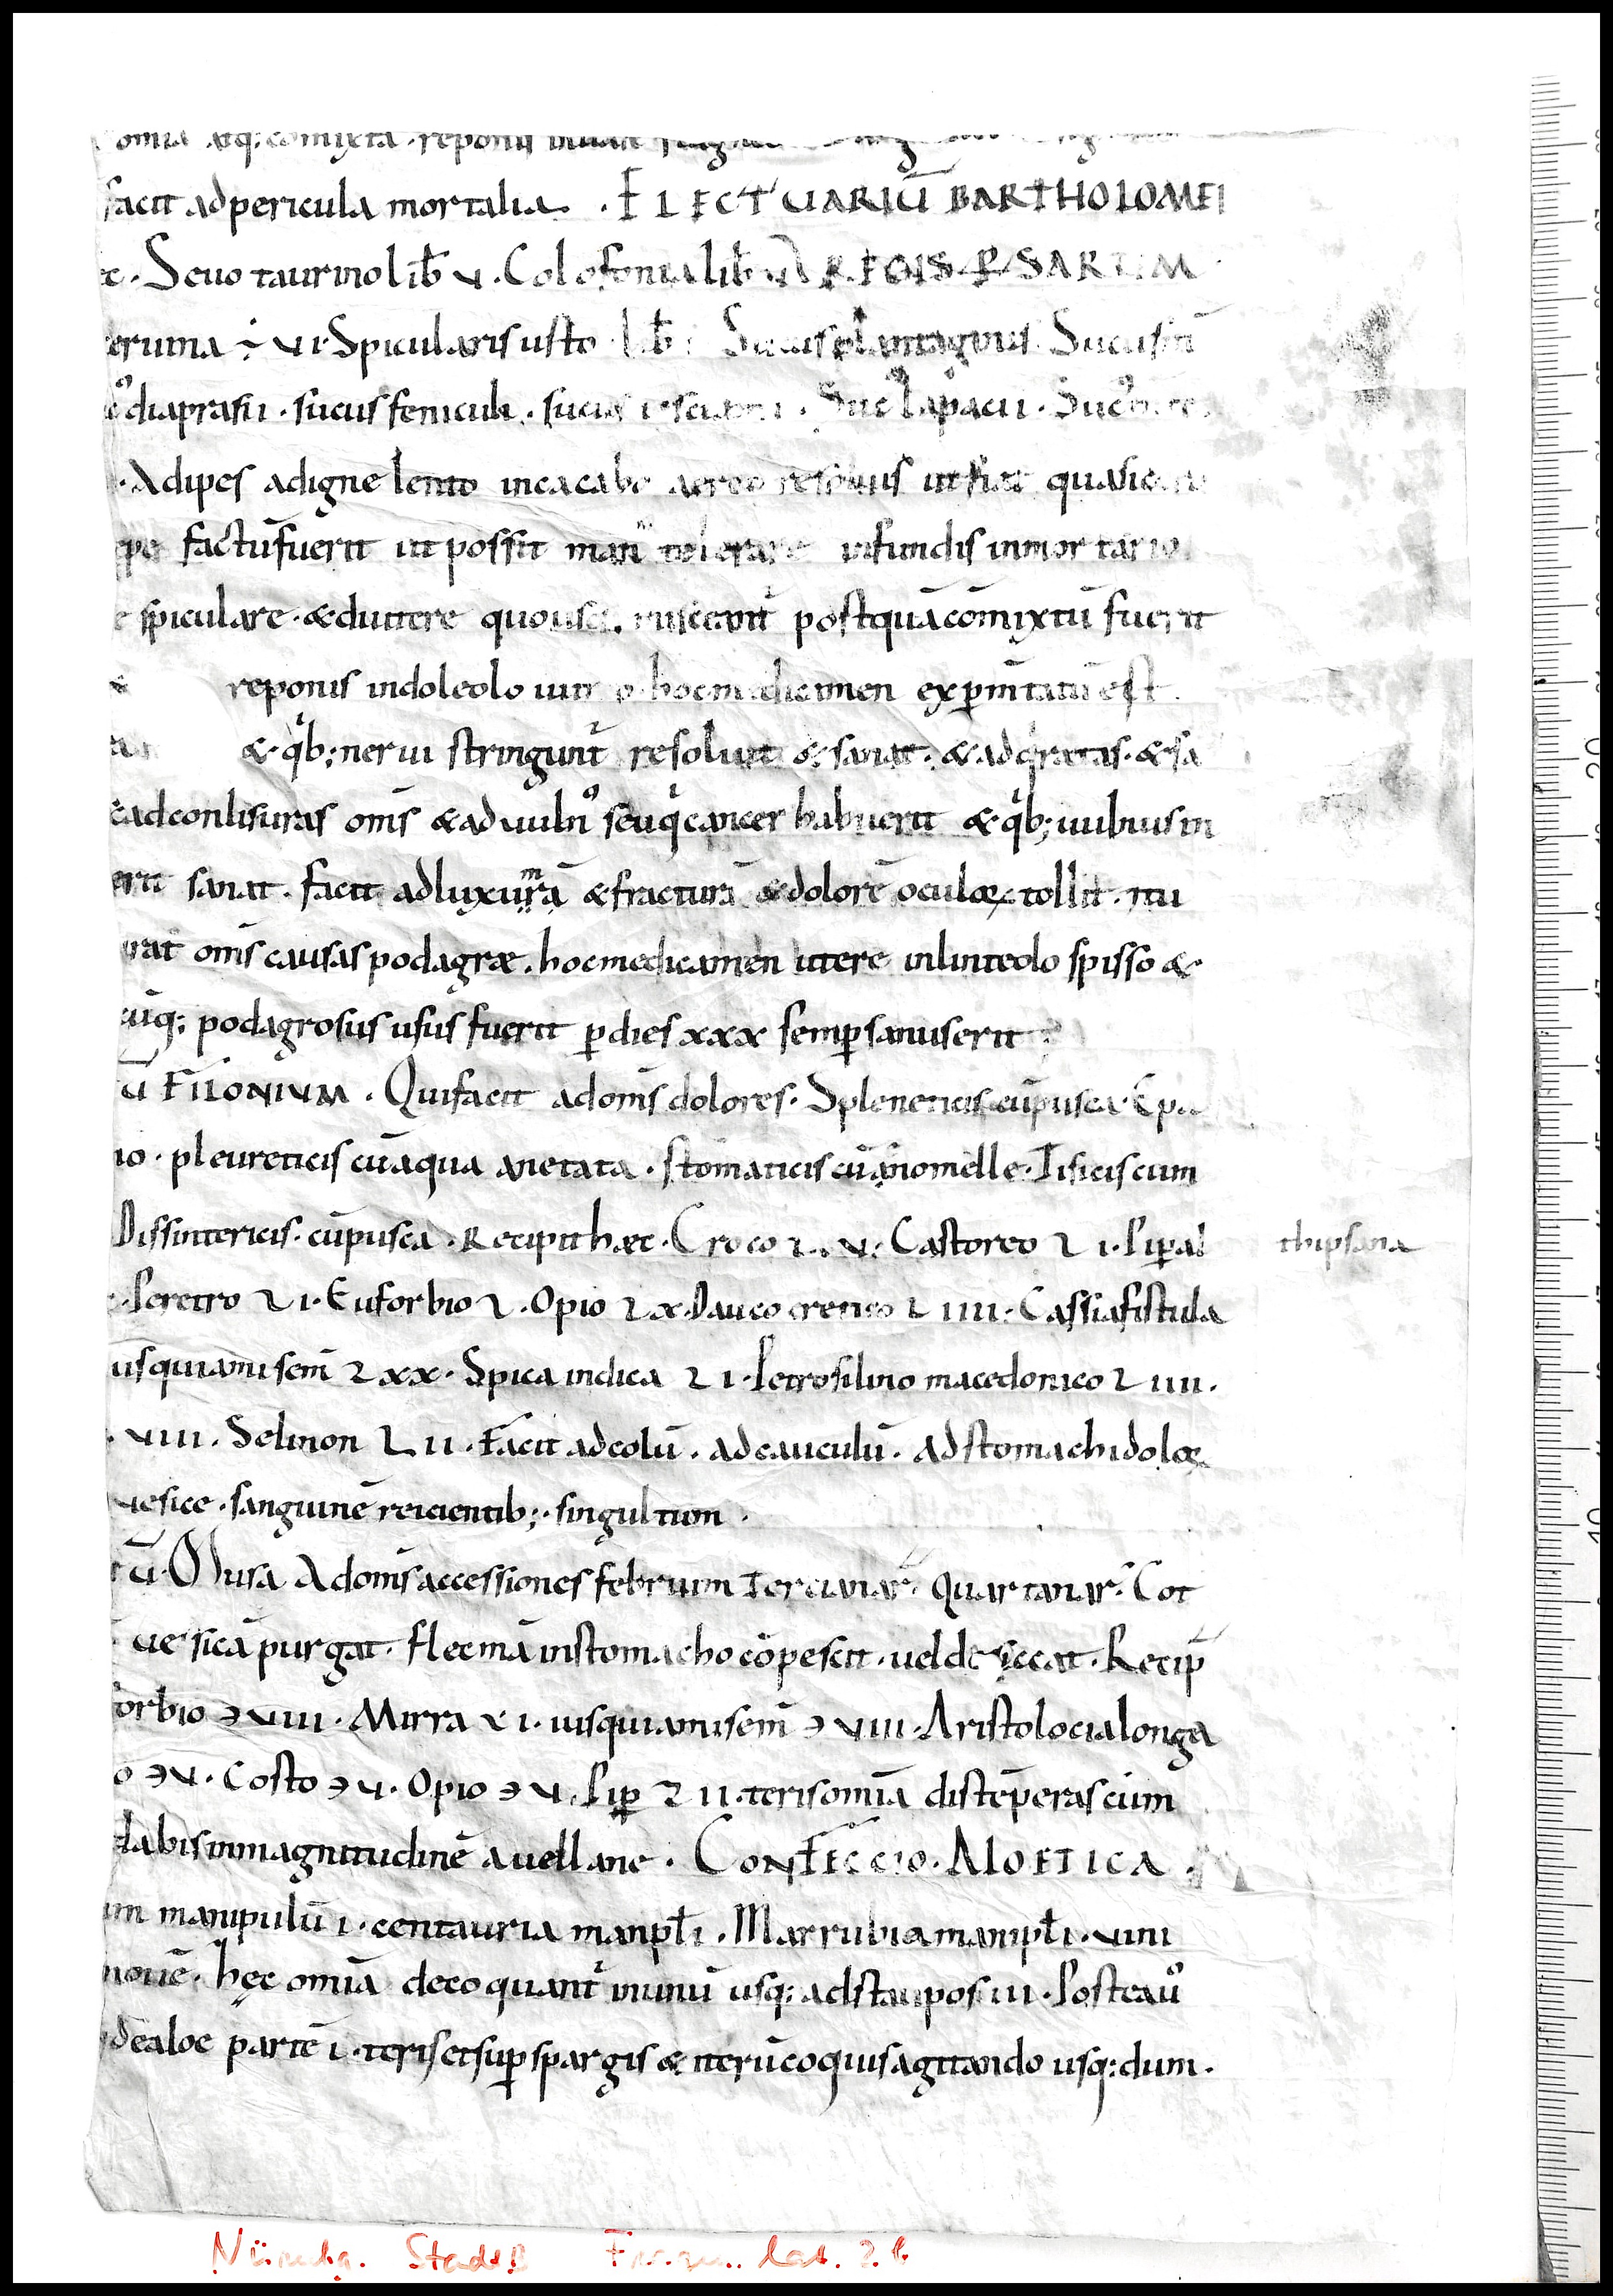 omia atq; comixta · reponis
facit ad pericula mortalia · ELECTUARIŪ BARTHOLOMEI
Seuo taurino lib̄ v · Colofonia lib̄ REGIS PSARTIM
ceruina ÷ vi · Spicularis usto lib̄ Sucus plantaginis · Sucus
diaprasii · sucus feniculi · sucus Suc lapacii · Suc
· Adipes ad igne lento in cacabo aereo resoluis ut fiat quasi
factū fuerit ut possit man tolerare infundis in mortario
spiculare · & duttere quousq; misceant̄ postquā comixtū fuerit
& reponis in doleolo uitreo hoc medicamen expim̄tatū est
& qb; nerui stringunt̄ resoluit & sanat · & ad & sa
& ad conlisuras om̄s & ad uuln seu q cancer habuerit & qb; uulnus in
erit sanat · facit ad luxurā & fracturā & dolorē oculoꝝ tollit ·
rat om̄s causas podagrae · hoc medicamen utere in linteolo spisso &
cūq; podagrosus usus fuerit p dies xxx semp sanus erit
ū FILONIUM · Qui facit ad om̄s dolores · Spleneticis cū pusca · Epa
io · pleureticis cū aqua anetata · stomaticis cū Tisicis cum
Dissintericis · cū pusca · Recipit haec · Croco ⁊ v · Castoreo ⁊ i · Pip al thipsana
· Peretro ⁊ i · Euforbio ⁊ · Opio ⁊ x · Dauco cretico ⁊ iiii · Cassia fistula
usquiami sem̄ ⁊ xx · Spica indica ⁊ i · Petrosilino macedonico ⁊ iiii ·
· viii · Selinon ⁊ ii · Facit ad colū · ad cauculū · ad stomachi doloꝝ
uesice · sanguinē reicientib; · singultum ·
ū · Musa Ad om̄s accessiones febrium Tercianar̄ Quartanar̄ Cot
uesicā purgat · flecmā in stomacho cōpescit · uel desiccat · Recip̄
forbio ℈ viii · Mirra v i · iusquiami sem̄ ℈ viii · Aristolocia longa
o ℈ v · Costo ℈ v · Opio ℈ v · Pip ⁊ ii · teris omīa distēperas cum
dabis in magnitudinē auellane · CONFECCIO · ALOETICA
um manipulū i · centauria manpl̄ i · Marrubia manipl̄ i · uini
nouē · hęc omīa decoquant̄ in unū usq; ad staupos iii · Postea ū
de aloe partē i · teris et sup spargis & iterū coquis agitando usq; dum ·
Nürnbg. StadtB Fragm. lat. 2 b